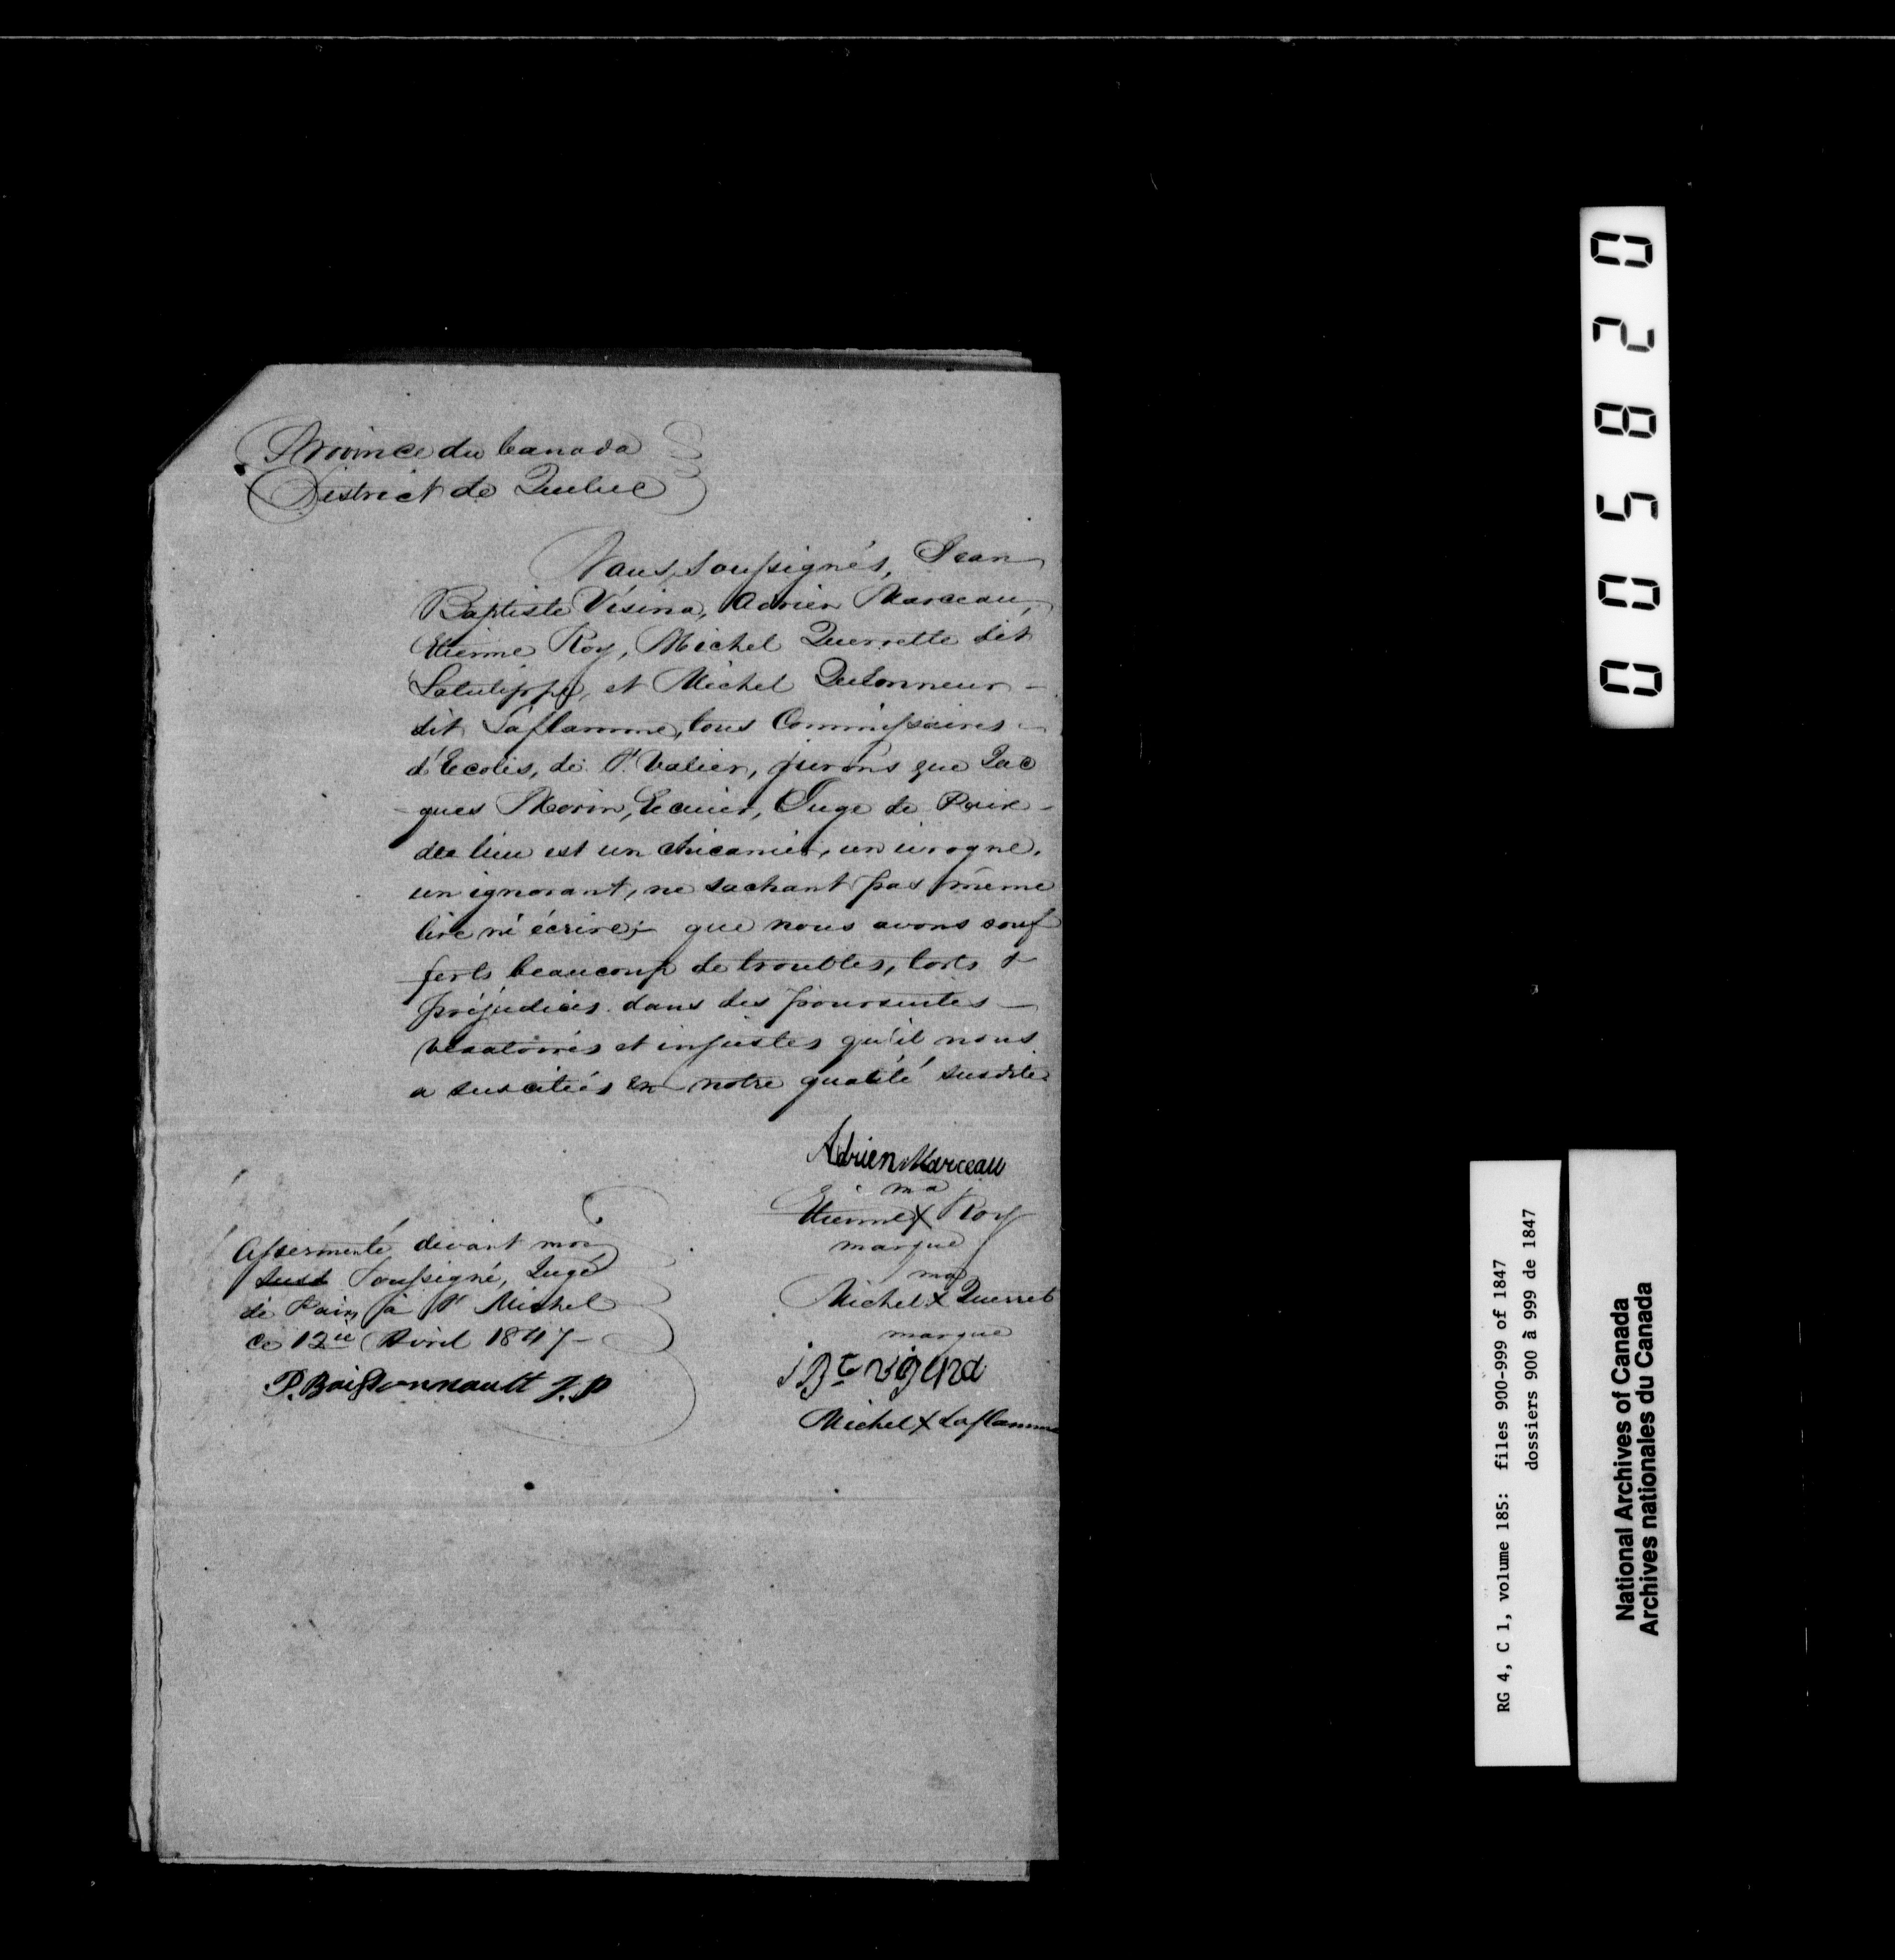 Province du Canada
District de Quebec
Nous, soussignés, Jean
Baptiste Vésina, Adrien Marceau,
Etienne Roy, Michel Querrette dit
Latulippe, et Michel QuéLonneur -
dit Laflamme, tous Commissaires -
d'Ecoles, de St Valier, jurons que Jac
-ques Morin, Ecuier, Juge de Paix -
du lieu est un chicanier, un ivrogne,
un ignorant, ne sachant pas même
lire ni écrire; que nous avons souf
-ferts beaucoup de troubles, torts &
préjudices dans des poursuites -
vexatoires et injustes qu'il nous
a suscitées en notre qualité susdite
Adrien Marceau
ma
Etienne X Roy
marque
ma
Michel X Querret
marque
jBte vigena
Michel X Laflamme
Assermenté devant moi
Soussigné, Juge
de Paix à St Michel
ce 12ue Avril 1847 -
P. Boissonnault J.P
00582 0
RG 4, C 1, volume 185: files 900-999 of 1847
dossiers 900 à 999 de 1847
National Archives of Canada
Archives nationales du Canada